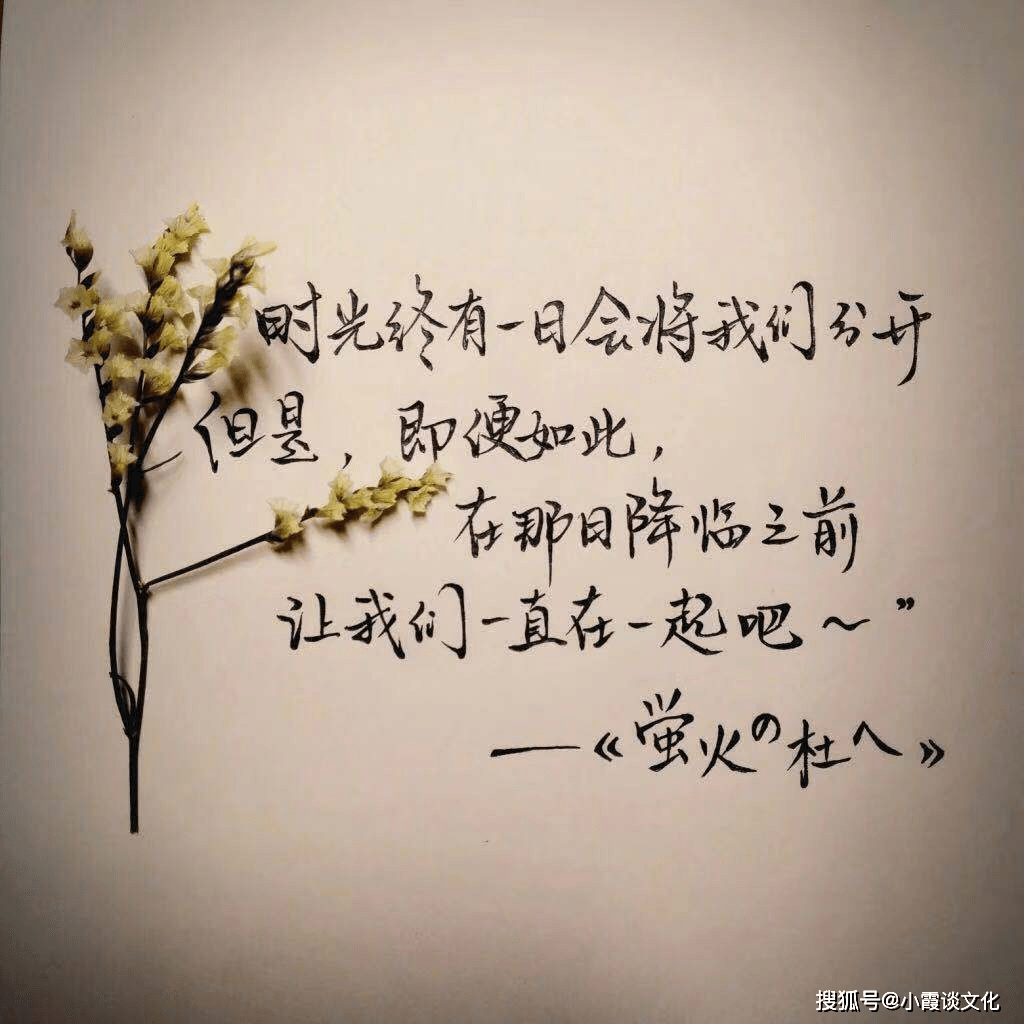 时光终有一日会将我们分开
但是，即便如此，
在那日降临之前
让我们一直在一起吧～”
——《蛍火の杜へ》
搜狐号@小霞谈文化